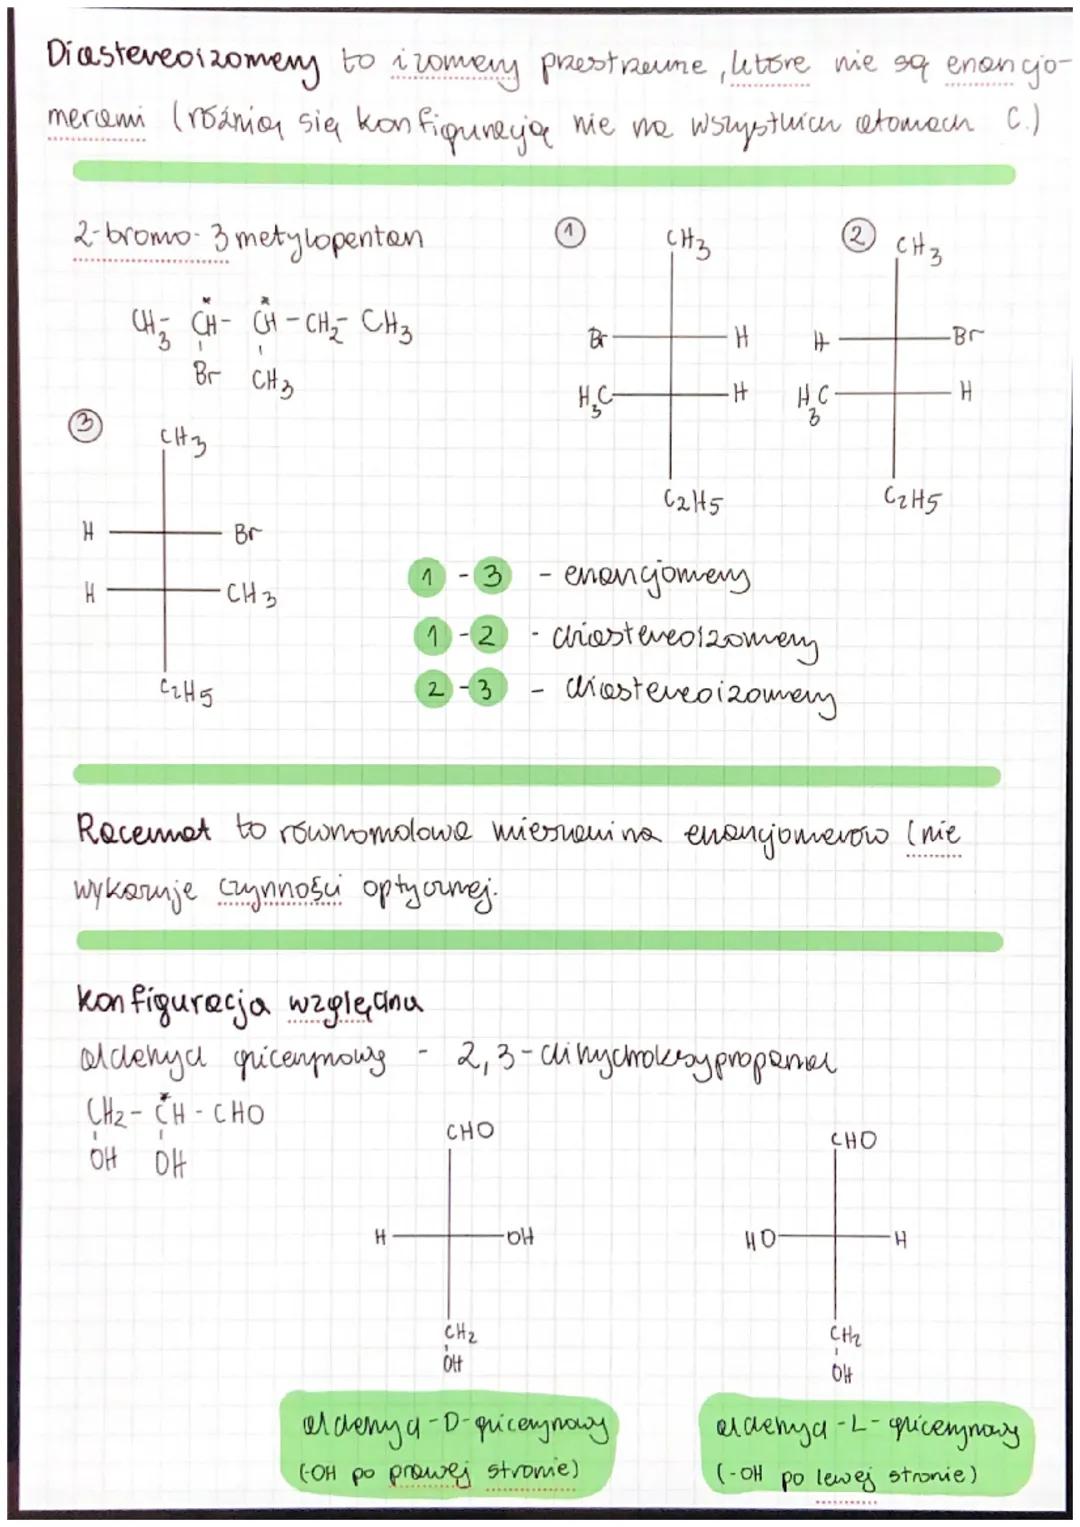 Diastereoizomery to izomery przestrzenne, które nie są enancjo-
merami (różnią się konfiguracją nie na wszystkich atomach C.)
2-bromo-3metylopentan
CH3-CH*-CH*-CH2-CH3
Br CH3
1
CH3
Br H
H3C H
C2H5
2
CH3
H Br
H3C H
C2H5
3
CH3
H Br
H CH3
C2H5
1 - 3 - enancjomery
1 - 2 - diastereoizomery
2 - 3 - diastereoizomery
Racemat to równomolowa mieszanina enancjomerów (nie
wykazuje czynności optycznej.
Konfiguracja względna
aldehyd glicerynowy - 2,3-dihydroksypropanal
CH2-CH*-CHO
OH OH
CHO
H OH
CH2
OH
aldehyd-D-glicerynowy
(-OH po prawej stronie)
CHO
HO H
CH2
OH
aldehyd-L-glicerynowy
(-OH po lewej stronie)